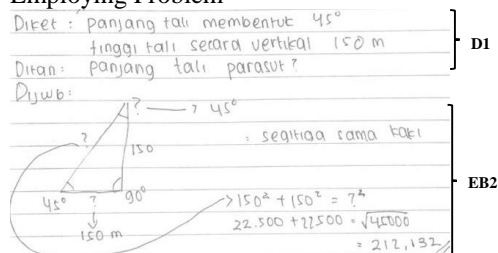 Employing Problem
Diket : panjang tali membentuk 45°
tinggi tali secara vertikal 150 m
Ditan : panjang tali parasut ?
D1
Dijwb :
? → 45°
?
150
: segitiga sama kaki
45° ? 90°
150 m
→ 150² + 150² = ?²
22.500 + 22500 = √45000
= 212,132
EB2